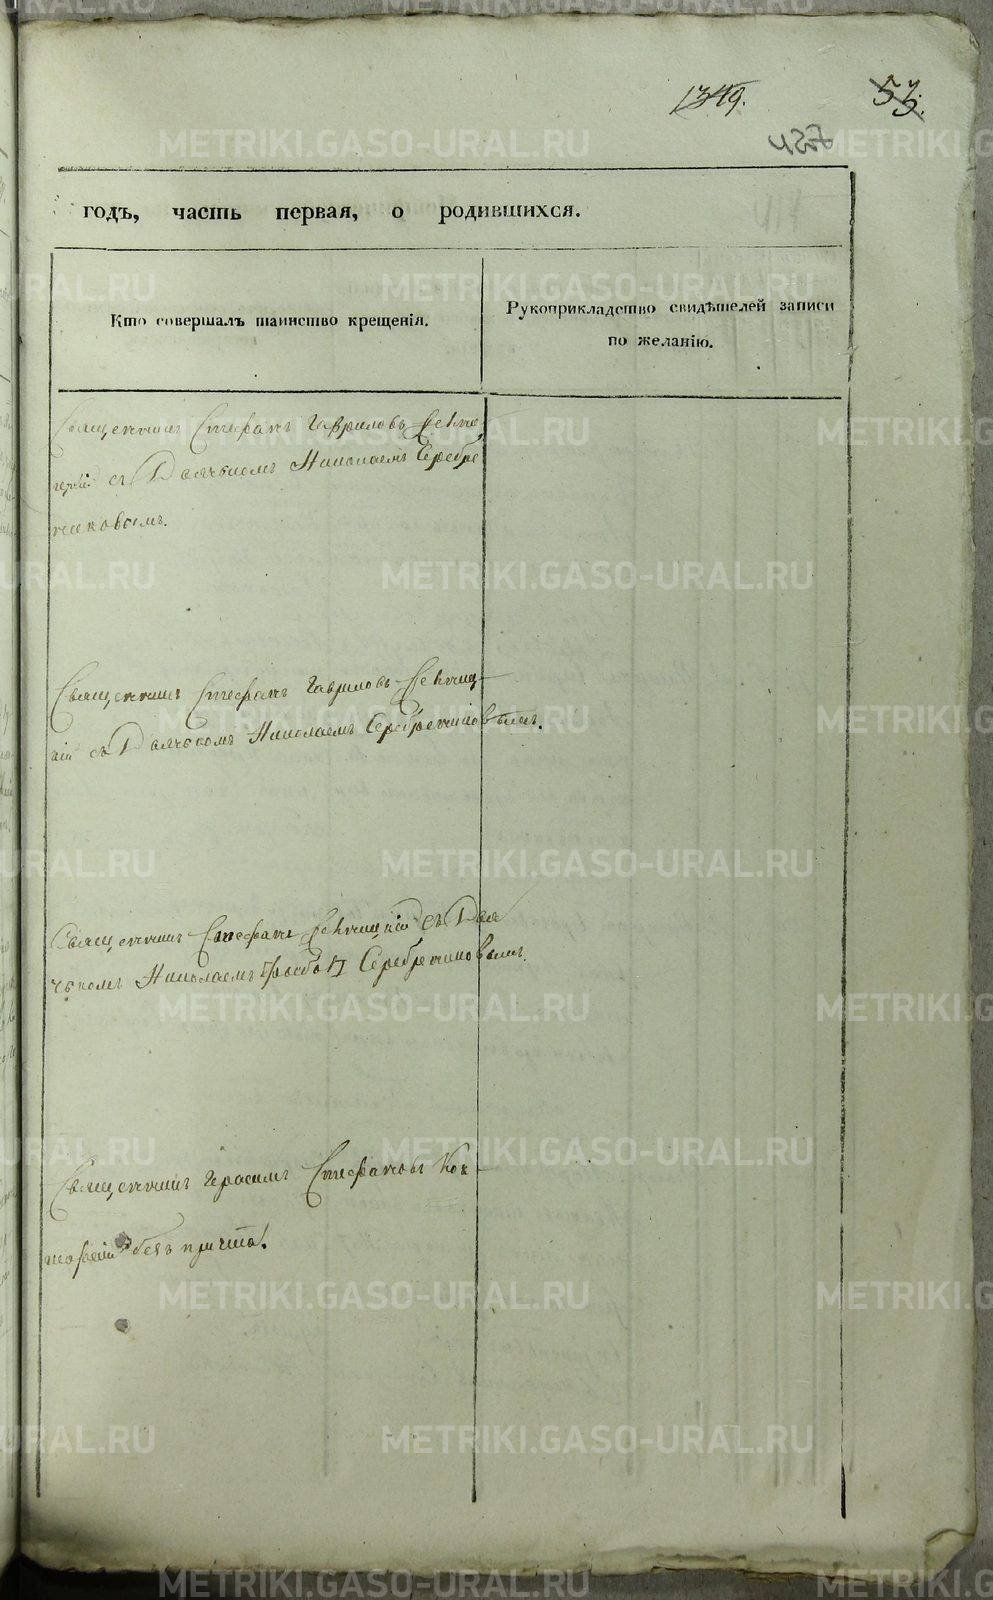 1349.
53.
METRIKI.GASO-URAL.RU
годъ, часть первая, о родившихся.
Кто совершалъ таинство крещенія.
Рукоприкладство свидѣтелей записи
по желанію.
Священникъ Стефанъ Гавриловъ
съ Дьячкомъ Николаемъ Серебре
никовымъ.
Священникъ Стефанъ Гавриловъ
кій съ Дьячкомъ Николаемъ Серебрениковымъ.
Священникъ Стефанъ съ Дья
чкомъ Николаемъ Серебрениковымъ.
Священникъ Герасимъ Стефановъ
безъ причта.